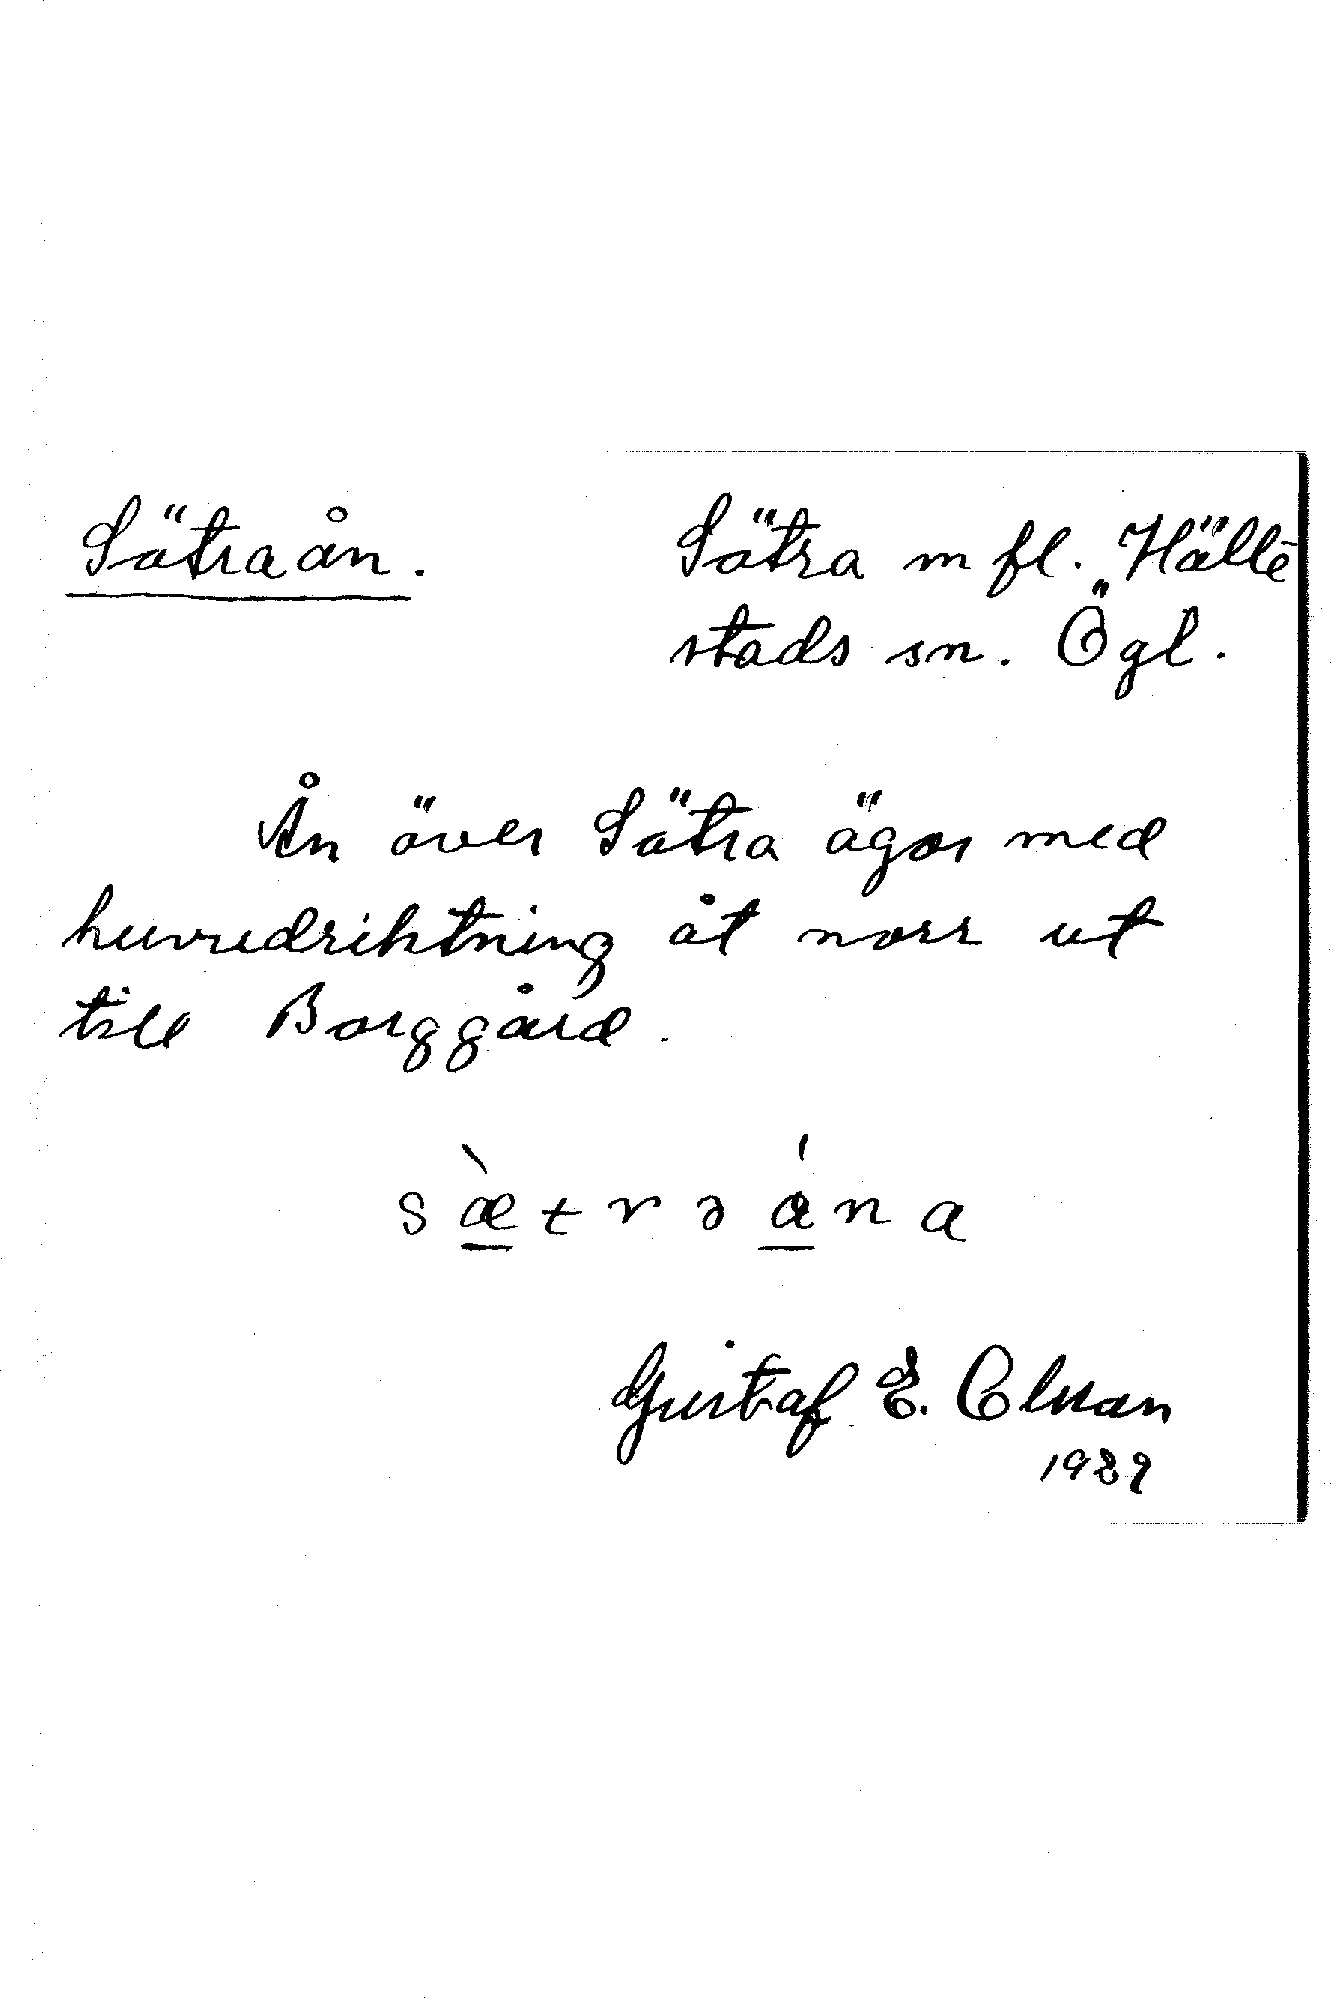 Sätraån.
Sätra m fl. Hälle-
stads sn. Ögl.
Ån över Sätra ägor med
huvudriktning åt norr ut
till Borggård.
sæ̀trəǻna
Gustaf E. Olsson
1929